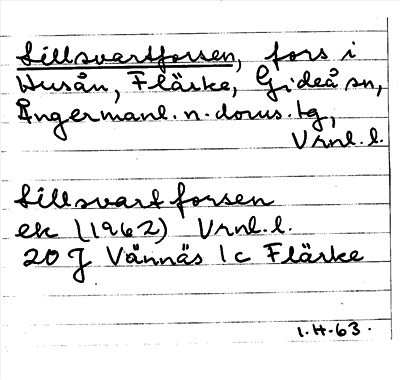 Lillsvartforsen, fors i
Husån, Fläske, Gideå sn,
Ångermanl. n. doms. tg,
Vrnl. l.
Lillsvartforsen
ek (1962) Vrnl. l.
20 J Vännäs 1c Fläske
1.H-63.